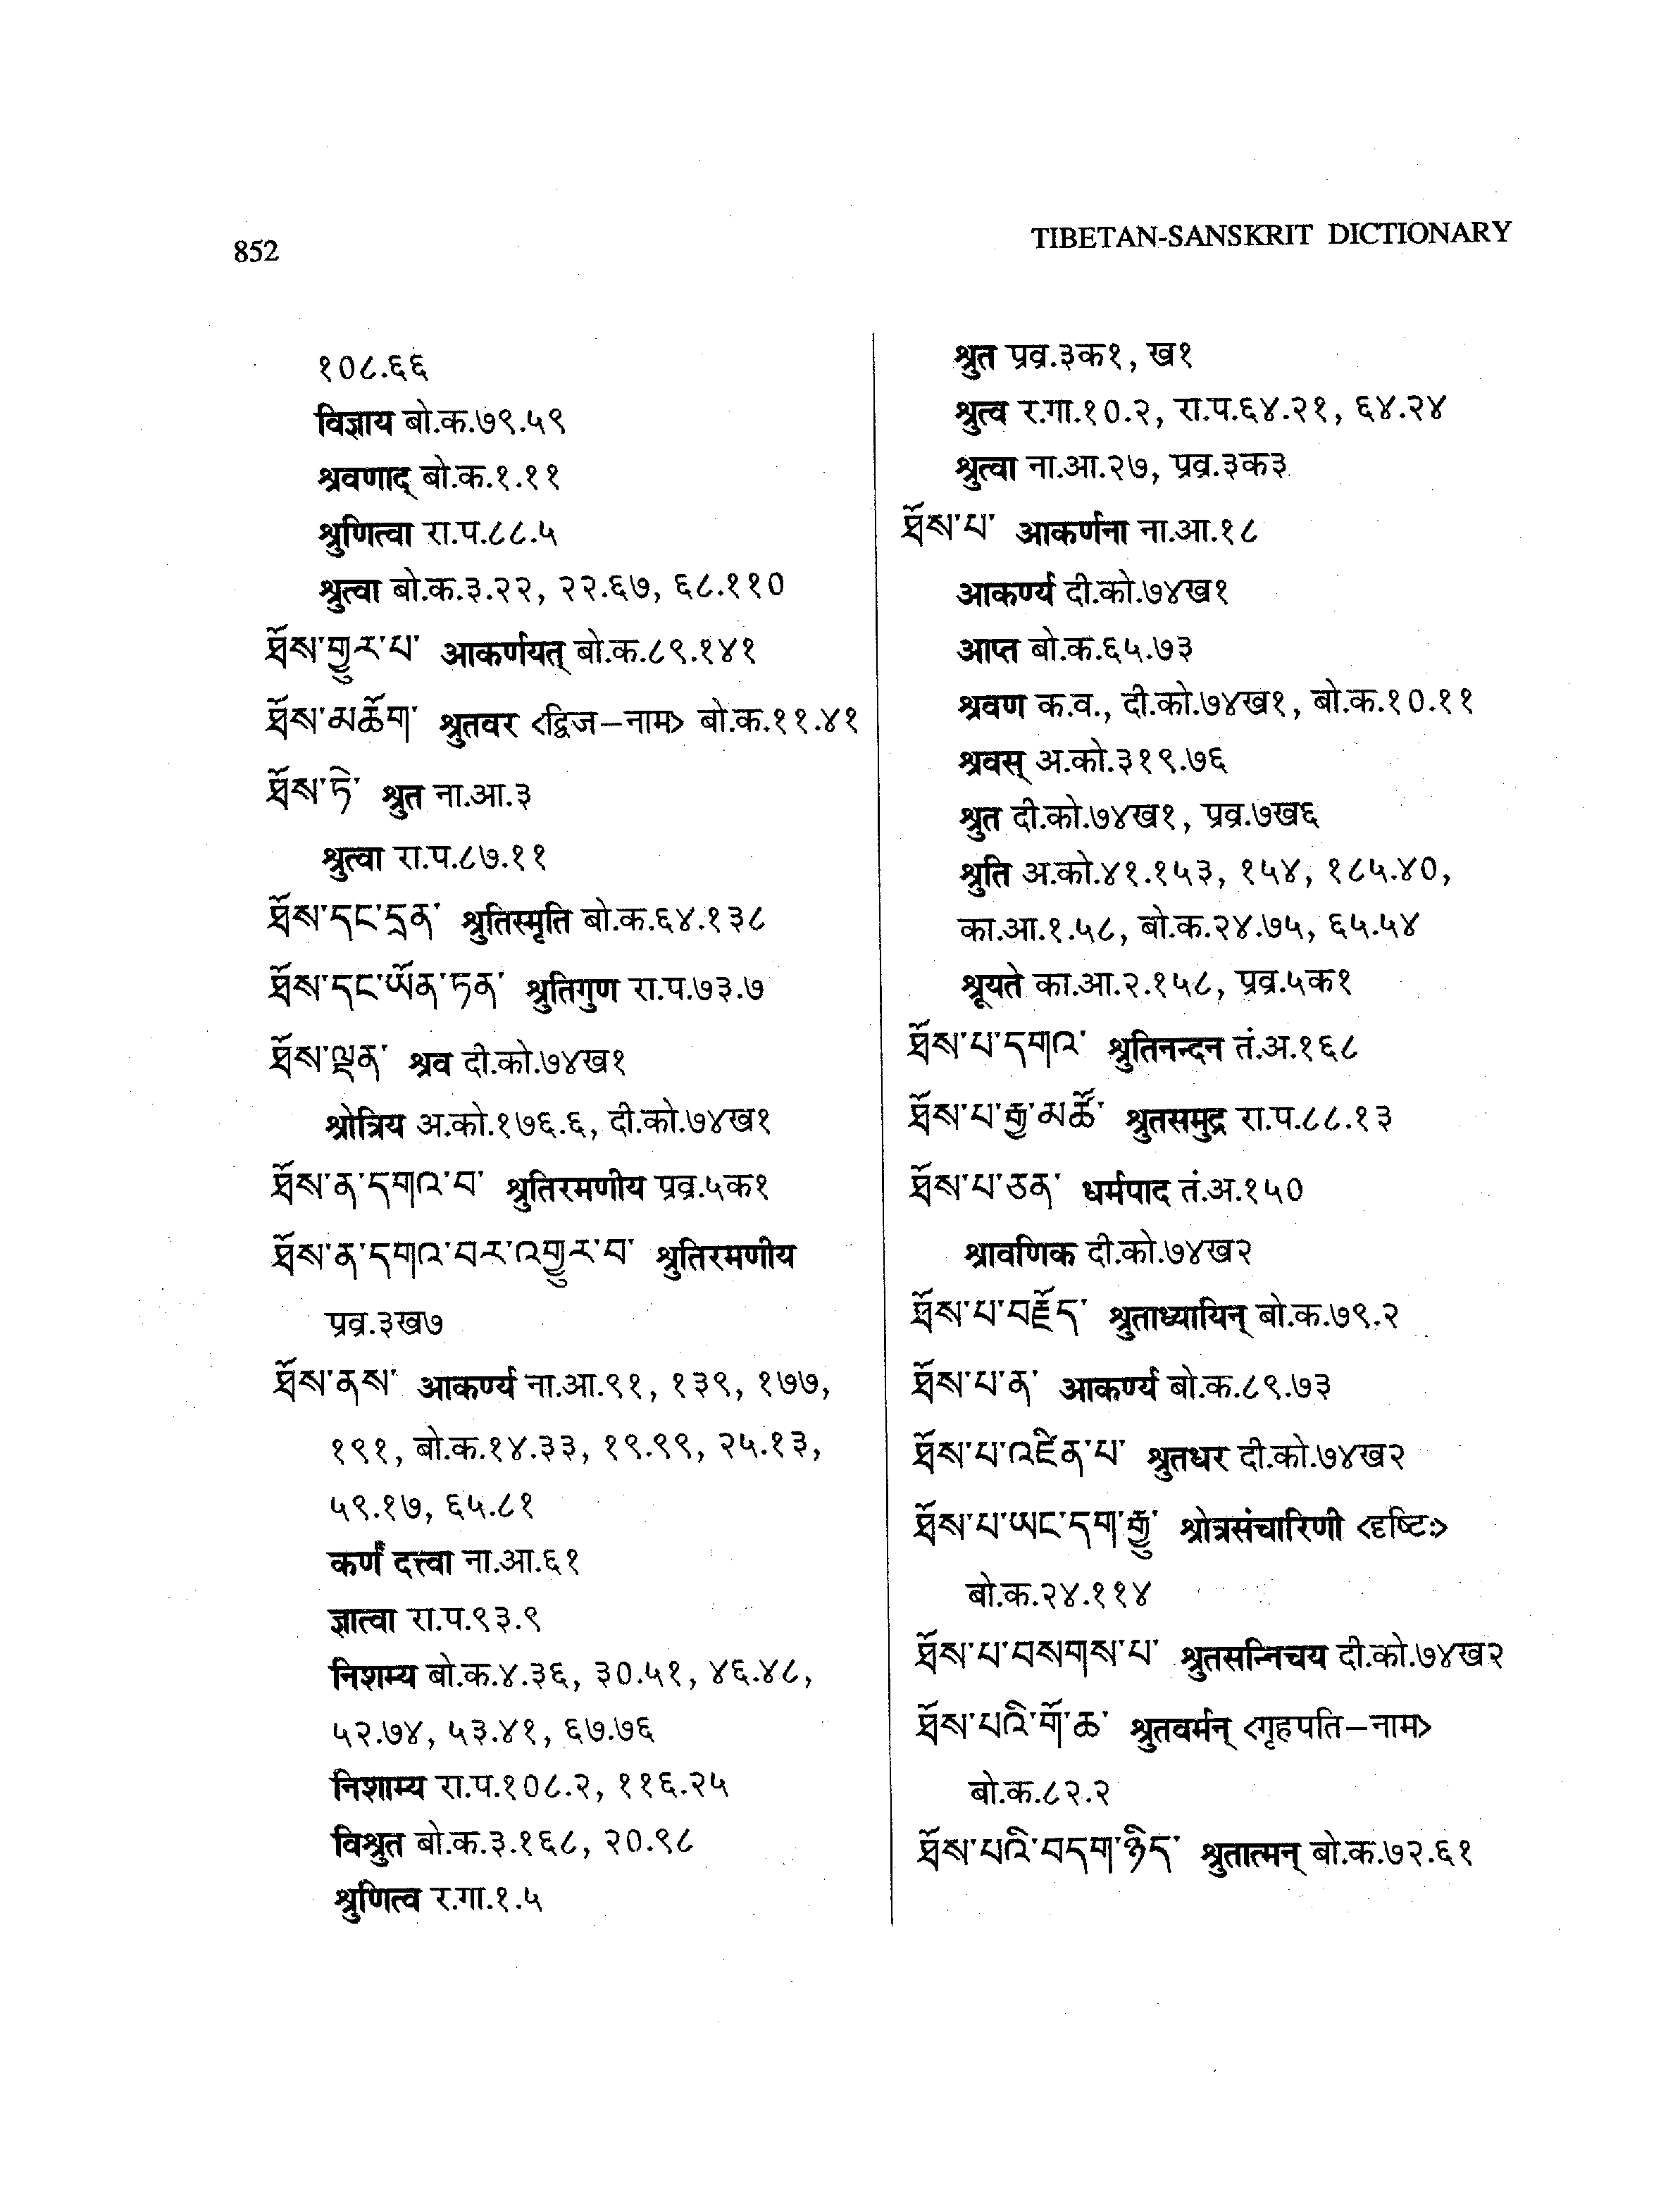 852
TIBETAN-SANSKRIT DICTIONARY
१०८.६६
विज्ञाय बो.क.७९.५९
श्रवणाद् बो.क.१.११
श्रुणित्वा रा.प.८८.५
श्रुत्वा बो.क.३.२२, २२.६७, ६८.११०
ཐོས་གྱུར་པ་ आकर्णयत् बो.क.८९.१४१
ཐོས་མཆོག་ श्रुतवर <द्विज–नाम> बो.क.११.४१
ཐོས་ཏེ་ श्रुत ना.आ.३
श्रुत्वा रा.प.८७.११
ཐོས་དང་དྲན་ श्रुतिस्मृति बो.क.६४.१३८
ཐོས་དང་ཡོན་ཏན་ श्रुतिगुण रा.प.७३.७
ཐོས་ལྡན་ श्रव दी.को.७४ख१
श्रोत्रिय अ.को.१७६.६, दी.को.७४ख१
ཐོས་ན་དགའ་བ་ श्रुतिरमणीय प्रव्र.५क१
ཐོས་ན་དགའ་བར་འགྱུར་བ་ श्रुतिरमणीय
प्रव्र.३ख७
ཐོས་ནས་ आकर्ण्य ना.आ.९१, १३९, १७७,
१९१, बो.क.१४.३३, १९.९९, २५.१३,
५९.१७, ६५.८१
कर्णं दत्त्वा ना.आ.६१
ज्ञात्वा रा.प.९३.९
निशम्य बो.क.४.३६, ३०.५१, ४६.४८,
५२.७४, ५३.४१, ६७.७६
निशाम्य रा.प.१०८.२, ११६.२५
विश्रुत बो.क.३.१६८, २०.९८
श्रुणित्व र.गा.१.५
श्रुत प्रव्र.३क१, ख१
श्रुत्व र.गा.१०.२, रा.प.६४.२१, ६४.२४
श्रुत्वा ना.आ.२७, प्रव्र.३क३
ཐོས་པ་ आकर्णना ना.आ.१८
आकर्ण्य दी.को.७४ख१
आप्त बो.क.६५.७३
श्रवण क.व., दी.को.७४ख१, बो.क.१०.११
श्रवस् अ.को.३१९.७६
श्रुत दी.को.७४ख१, प्रव्र.७ख६
श्रुति अ.को.४१.१५३, १५४, १८५.४०,
का.आ.१.५८, बो.क.२४.७५, ६५.५४
श्रूयते का.आ.२.१५८, प्रव्र.५क१
ཐོས་པ་དགའ་ श्रुतिनन्दन तं.अ.१६८
ཐོས་པ་རྒྱ་མཚོ་ श्रुतसमुद्र रा.प.८८.१३
ཐོས་པ་ཅན་ धर्मपाद तं.अ.१५०
श्रावणिक दी.को.७४ख२
ཐོས་པ་བརྗོད་ श्रुताध्यायिन् बो.क.७९.२
ཐོས་པ་ན་ आकर्ण्य बो.क.८९.७३
ཐོས་པ་འཛིན་པ་ श्रुतधर दी.को.७४ख२
ཐོས་པ་ཡང་དག་རྒྱུ་ श्रोत्रसंचारिणी <दृष्टिः>
बो.क.२४.११४
ཐོས་པ་བསགས་པ་ श्रुतसन्निचय दी.को.७४ख२
ཐོས་པའི་གོ་ཆ་ श्रुतवर्मन् <गृहपति–नाम>
बो.क.८२.२
ཐོས་པའི་བདག་ཉིད་ श्रुतात्मन् बो.क.७२.६१